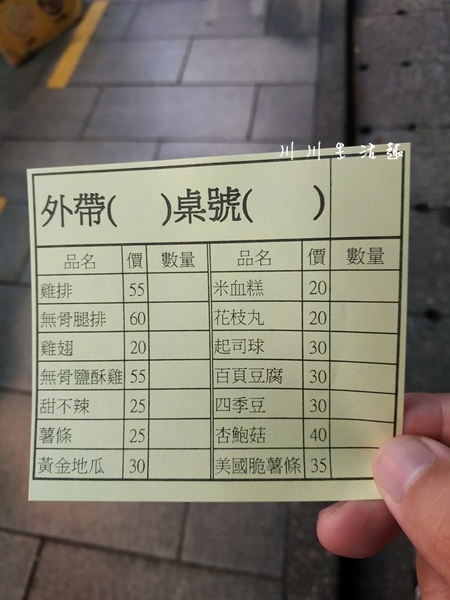 川川生活趣
外帶(　)桌號(　)
品名 價 數量 品名 價 數量
雞排 55 米血糕 20
無骨腿排 60 花枝丸 20
雞翅 20 起司球 30
無骨鹽酥雞 55 百頁豆腐 30
甜不辣 25 四季豆 30
薯條 25 杏鮑菇 40
黃金地瓜 30 美國脆薯條 35